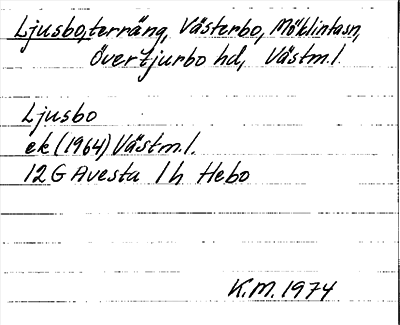 Ljusbo, terräng, Västerbo, Möklintasn,
Övertjurbo hd, Västm.l.
Ljusbo
ek (1964) Västm.l.
12 G Avesta 1 h Hebo
K.M. 1974